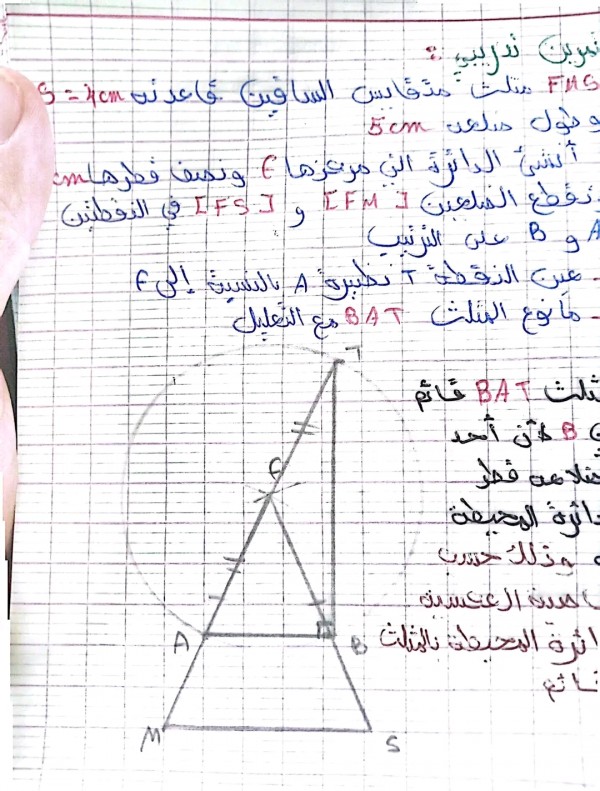 تمرين تدريبي :
FMS مثلث متقايس الساقين قاعدته S = 4cm
و طول ضلعه 5cm
أنشئ الدائرة التي مركزها F ونصف قطرها cm
تقطع الضلعين [FM] و [FS] في النقطتين
A و B على الترتيب
- عين النقطة T نظيرة A بالنسبة إلى F
- ما نوع المثلث BAT مع التعليل
T
F
A
B
M
S
ثلث BAT قائم
B لأن أحد
ضلاعه قطر
دائرة المحيطة
وذلك حسب
اصية العكسية
ائرة المحيطة بالمثلث
قائم